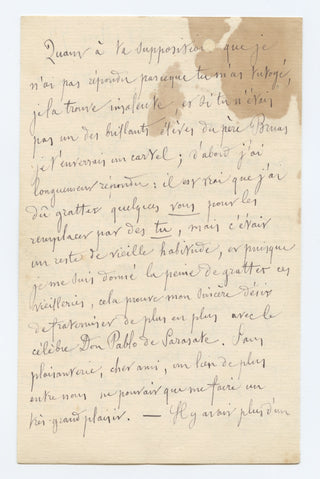 Quant à ta supposition que je
n'ai pas répondu parceque tu m'as tutoyé,
je la trouve insolente et si tu n'étais
pas un des brillants élèves du père
je t'enverrais un cartel ; d'abord j'ai
longuement répondu ; il est vrai que j'ai
dû gratter quelques vous pour les
remplacer par des tu, mais c'était
un reste de vieille habitude, et puisque
je me suis donné la peine de gratter ces
vieilleries, cela prouve mon sincère désir
de fraterniser de plus en plus avec le
célèbre Don Pablo de Sarasate. Sans
plaisanterie, cher ami, un lien de plus
entre nous ne pouvait que me faire un
très-grand plaisir. — Il y avait plus d'un